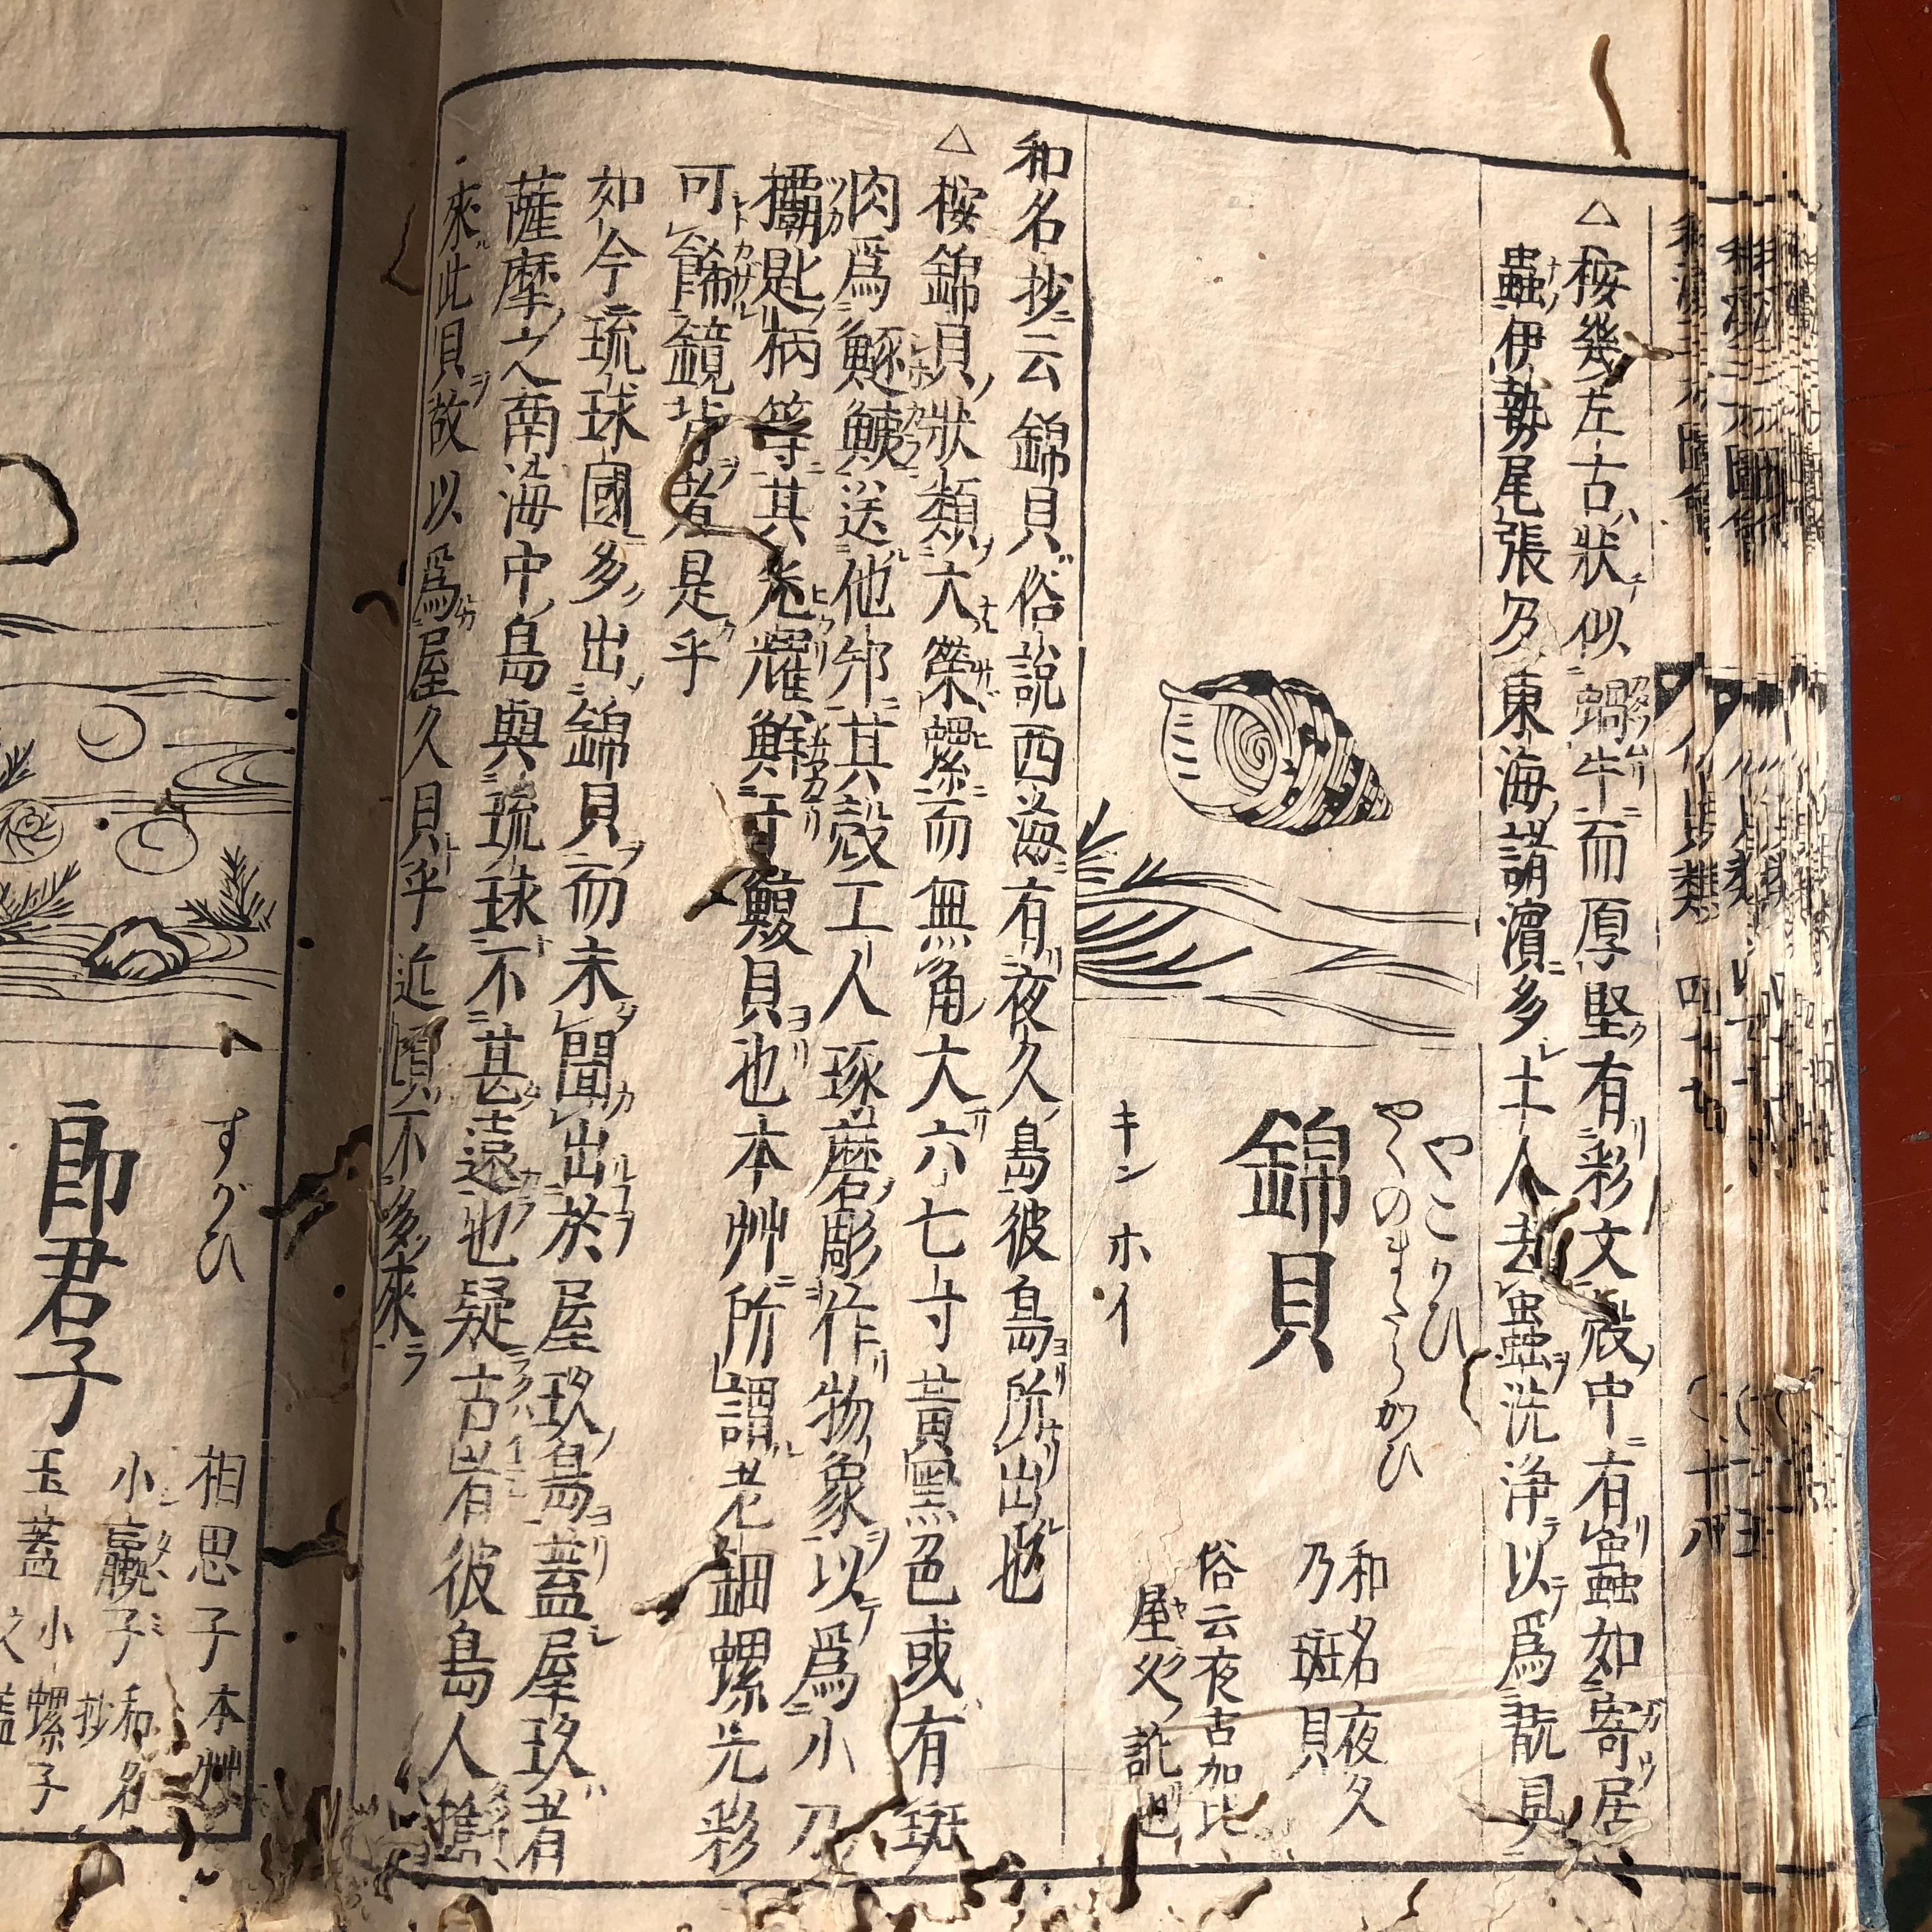 △桉幾左古狀似蝸牛而厚堅有彩文殻中有蟲如寄居
蟲伊勢尾張及東海諸濱多土人去蟲洗浄以爲翫具
やこがひ
やくのまだらがひ
錦貝
キン ホイ
和名夜久
乃斑貝
俗云夜古加比
屋久訛也
和名抄云錦貝俗說西海有夜久島彼島所出也
△桉錦貝狀類大榮螺而無角大六七寸黃黑色或有斑
肉爲鱁鮧送他邦其殻工人琢磨彫作物象以爲小刀
欛匙柄等其光耀鮮于鰒貝也本艸所謂老鈿螺光彩
可餙鏡背者是乎
如今琉球國多出錦貝而未聞出於屋玖島蓋屋玖者
薩摩之南海中島與琉球不甚遠也疑古昔彼島人擕
來此貝故以爲屋久貝乎近頃不多來
すがひ
郎君子
相思子 本艸
小蠃子 和名抄
玉蓋 小螺子